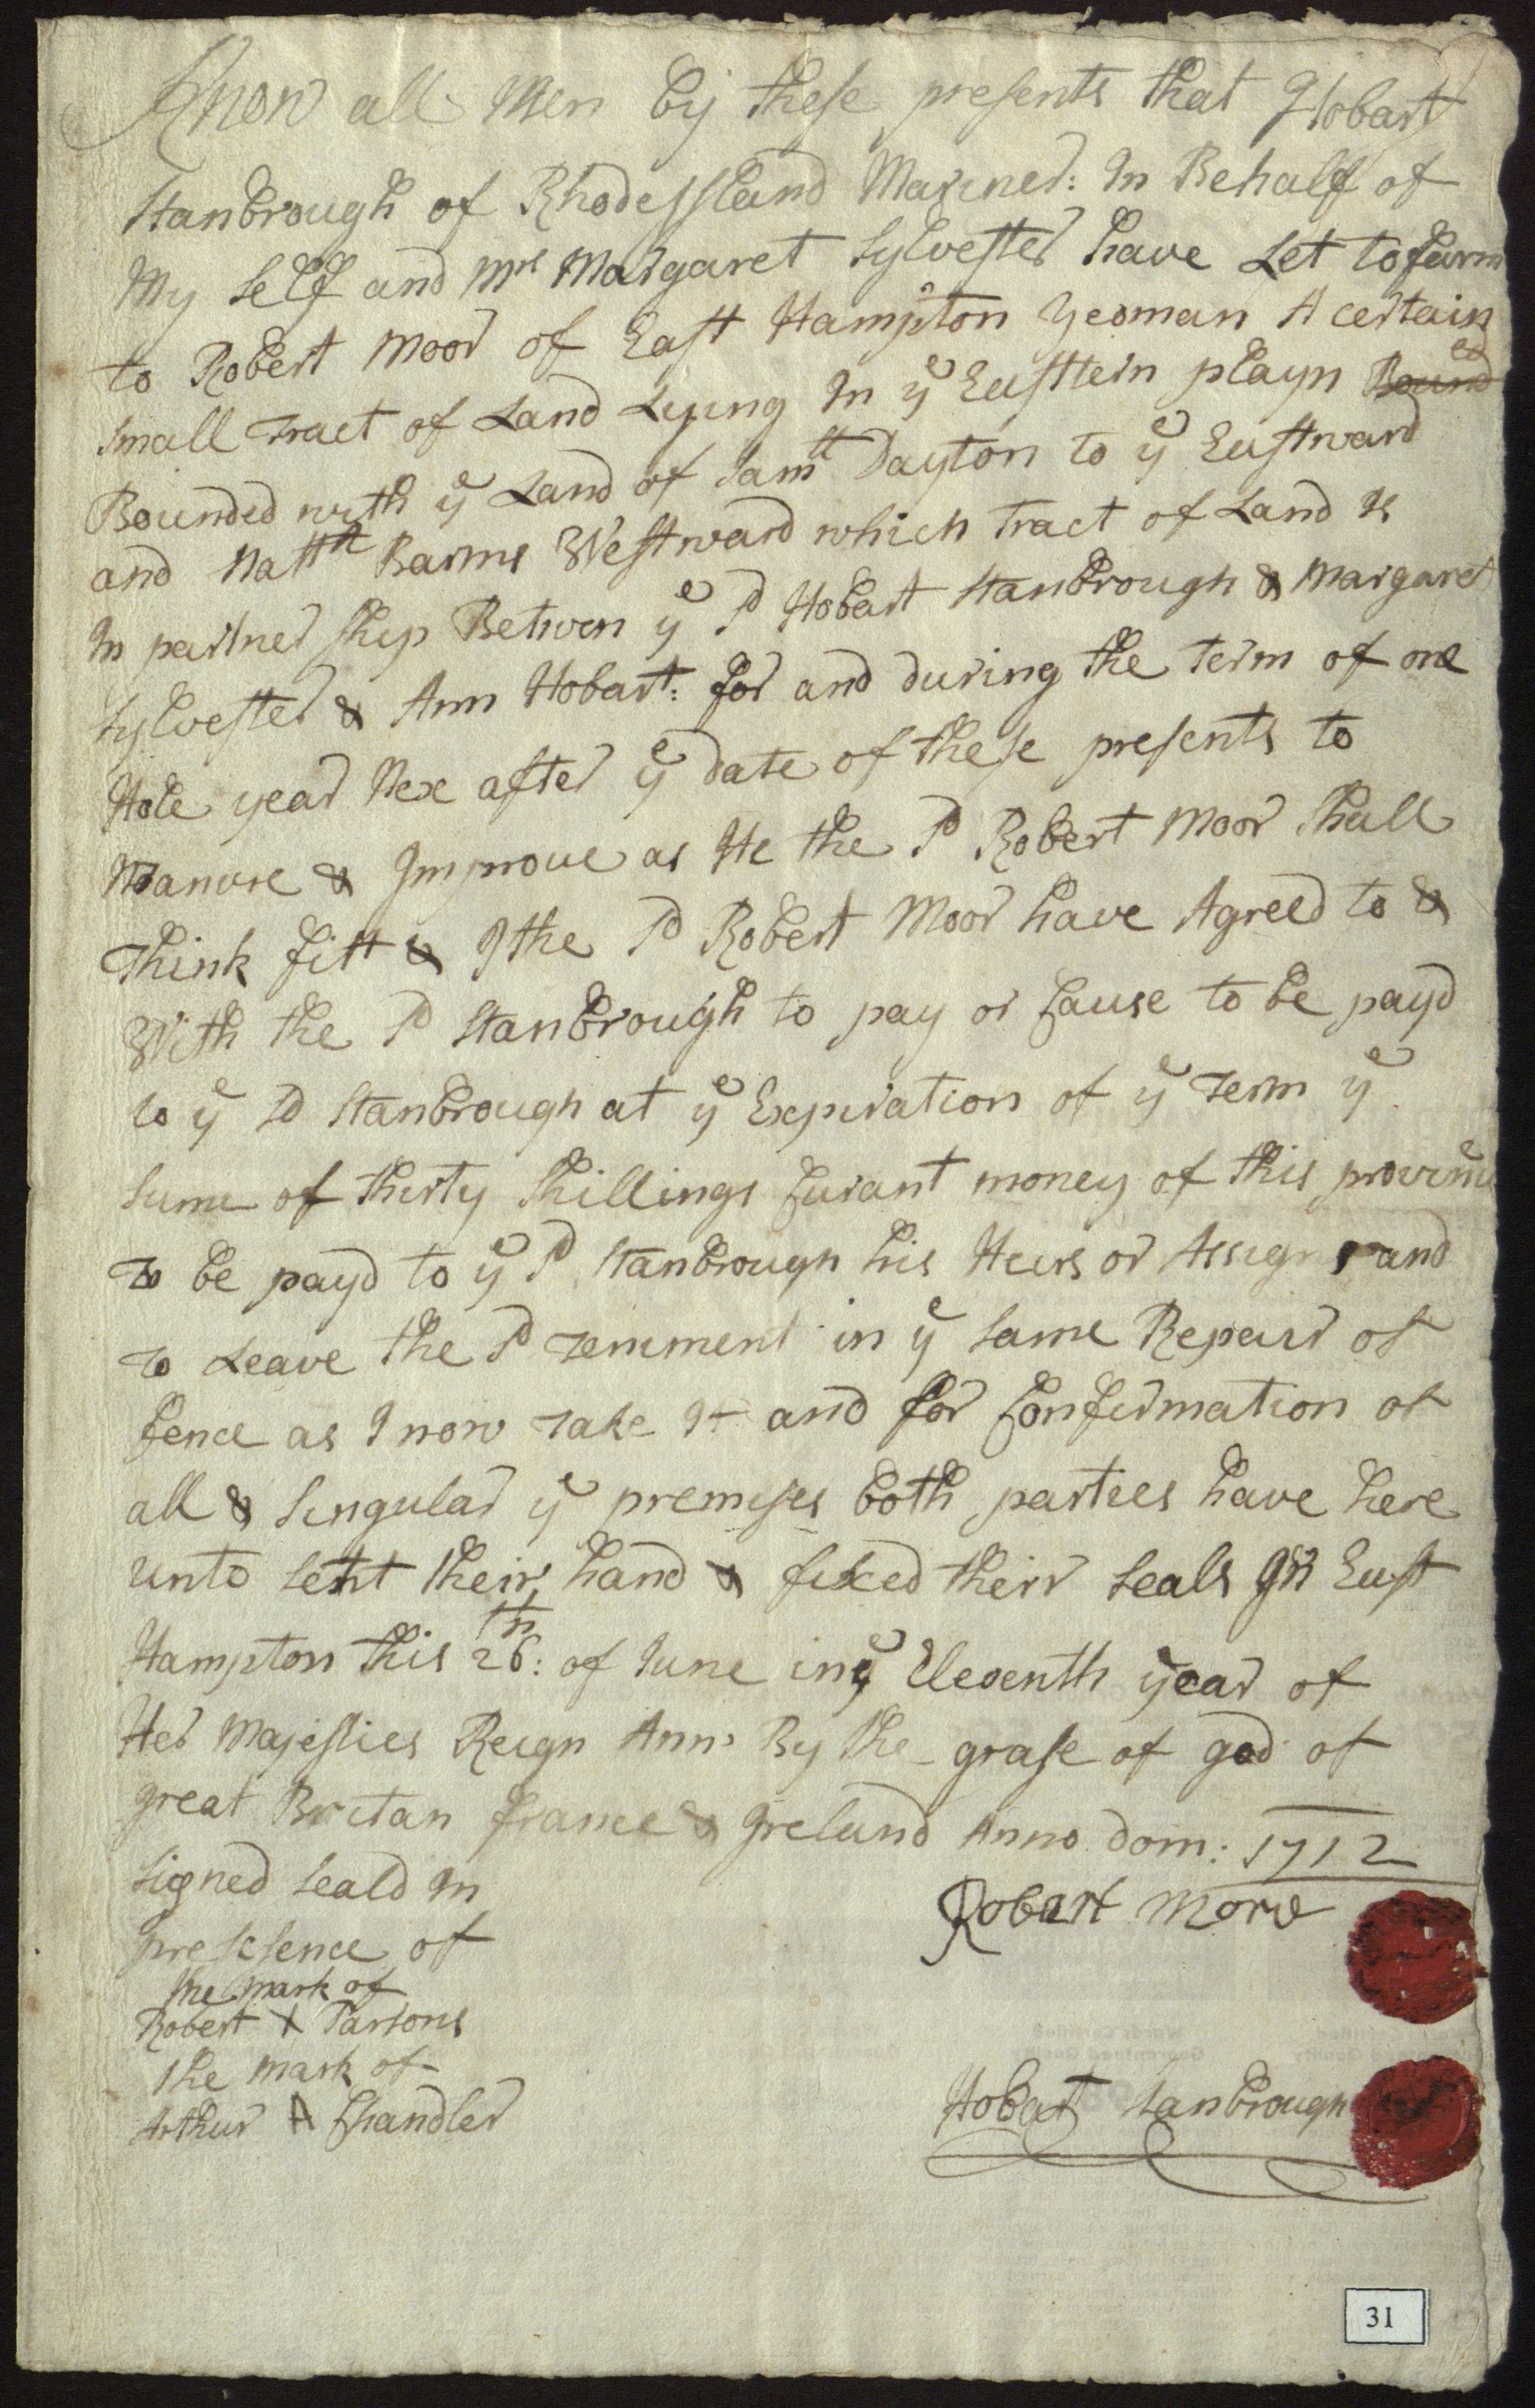 Know all Men by these presents that I Hobart
Stanbrough of RhodeIsland Mariner: In Behalf of
My Self and Mrs Margaret Sylvester have Let to farm
to Robert Moor of East Hampton Yeoman A certain
Small Tract of Land Lying In ye Eastern playn Bounded
Bounded with ye Land of Samll Dayton to ye Eastward
and Natth Barns Westward which Tract of Land Is
In partner Ship Betwen ye Sd Hobart Stanbrough & Margaret
Sylvester & Ann Hobart: for and during the term of one
Hole year Nex after ye date of these presents to
Manure & Improve as He the Sd Robert Moor Shall
Think fitt & I the Sd Robert Moor have Agreed to &
With the Sd Stanbrough to pay or Cause to be payd
to ye Sd Stanbrough at ye Expiration of ye Term ye
Sume of thirty Shillings Curant money of this province
To be payd to ye Sd Stanbrough his Heirs or Assigns and
To Leave the Sd Tenment in ye Same Repair of
fence as I now Take It and for Confirmation of
all & Singular ye premises both parties have here
unto sett their hand & fixed their Seals In East
Hampton this 26th: of June in ye Eleventh year of
Her Majesties Reign Ann By the grase of god of
great Britan france & Ireland Anno Dom: 1712
Signed Seald In
presesence of
the mark of
Robert X Parsons
the mark of
Arthur A Chandler
Robart More
Hobart Stanbrough
31